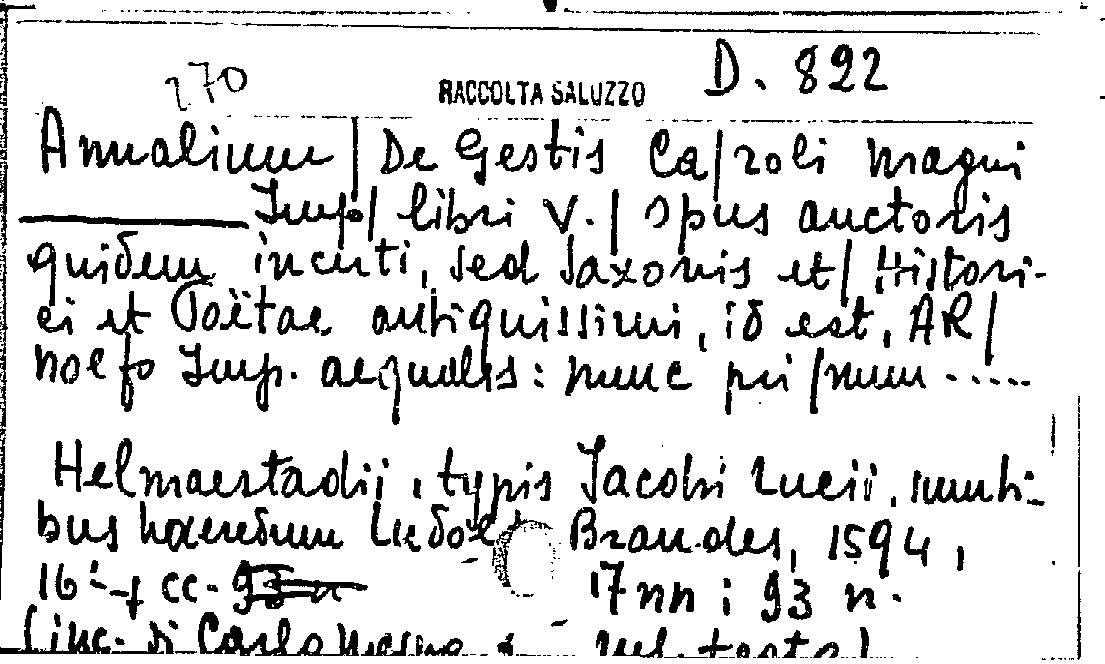 270 RACCOLTA SALUZZO D. 822
Annalium / De Gestis Ca/roli Magni
Imp/ libri V. / Opus auctoris
quidem incerti, sed Saxonis et / Histori-
ci et Poëtae antiquissimi, id est, AR/
nolfo Imp. aequalis : nunc pri/mum .....
Helmaestadii, typis Jacobi Lucii, sumti_
bus haeredum Brandes, 1594,
16° cc. 17 nn ; 93 n.
(inc. di Carlo Magno testo)